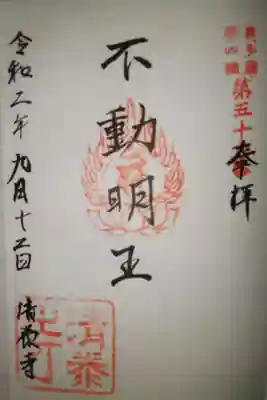 奉拝
第五十
不動明王
令和二年九月十二日
清泰寺